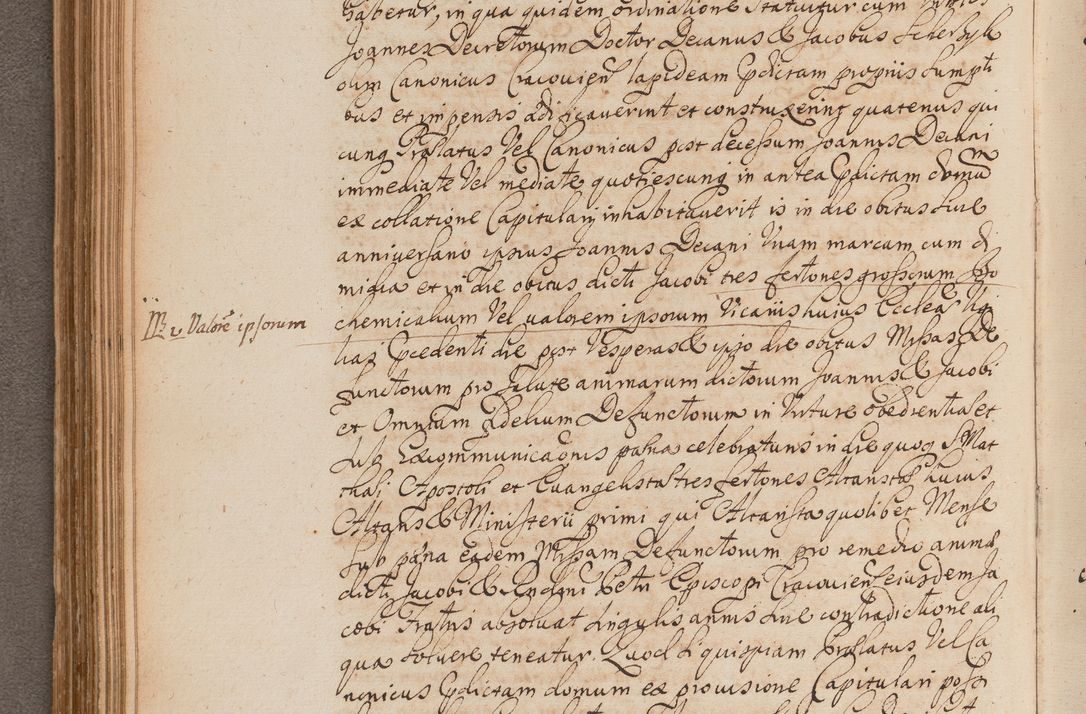 habetur, in qua quidem ordinatione statuitur cum
Joannes Decretorum Doctor Decanus & Jacobus Scherzyk
olim Canonicus Cracovien lapideam Pdictam propriis sumpti
bus et impensis ædificaverint et construxerint quatenus qui
cunq Prælatus Vel Canonicus post decessum Joannis Decani
immediate Vel mediate quotiescunq in antea Pdictam domum
ex collatione Capitulari inhabitaverit is in die obitus sive
anniversario ipsius Joannis Decani Unam marcam cum di
midia et in die obitus dicti Jacobi tres fertones grossorum Bo
hemicalium Vel valorem ipsorum Vicariis huius Ecclesiæ Vigi
lias Pcedenti die post Vesperas & ipso die obitus Missas De
functorum pro salute animarum dictorum Joannis & Jacobi
et Omnium fidelium Defunctorum in Virtute obedientiæ et
sub Excommunicaonis pœna celebraturis in die quoq S Mat
thæi Apostoli et Evangelistæ tres fertones Altaristæ huius
Altaris & Ministerii primi qui Altarista quolibet Mense
sub pæna eadem Missam Defunctorum pro remedio animæ
dicti Jacobi & Dndni Petri Episcopi Cracovien eiusdem Ja
cobi Fratris absolvat singulis annis sine contradictione ali
qua solvere teneatur. Quod si quispiam Prælatus Vel Ca
nonicus Pdictam domum ex provisione Capitulari poss
Valore ipsorum